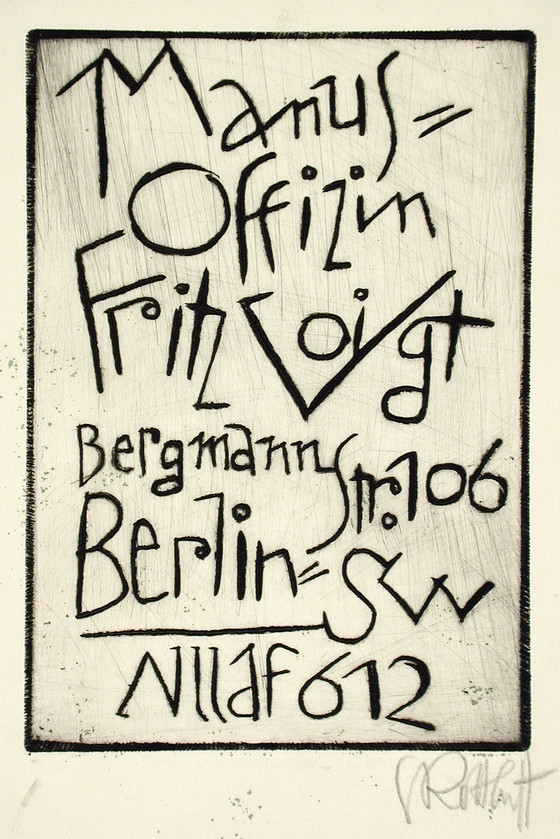 Manus=
Offizin
Fritz Voigt
Bergmannstr. 106
Berlin=SW
612